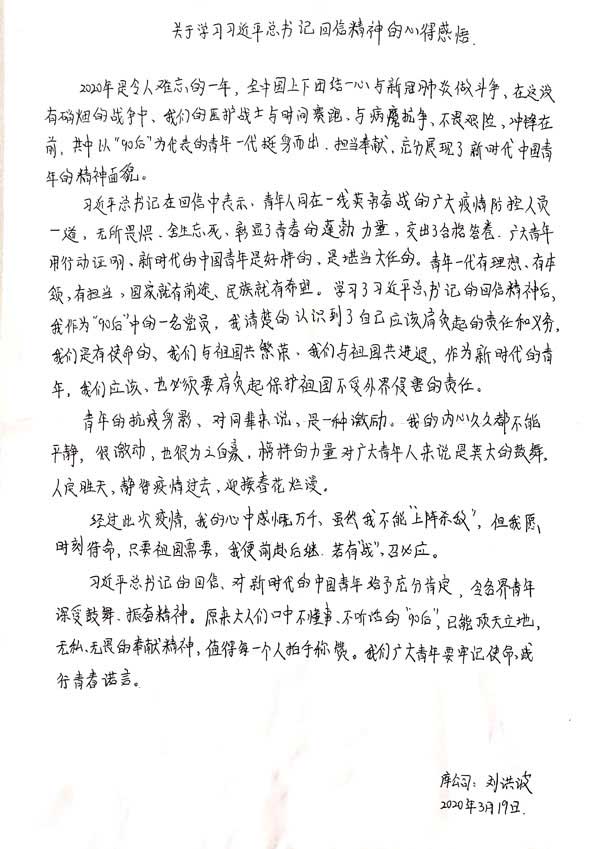 关于学习习近平总书记回信精神的心得感悟.
2020年是令人难忘的一年,全中国上下团结一心与新冠肺炎做斗争、在这没
有硝烟的战争中、我们的医护战士与时间赛跑、与病魔抗争、不畏艰险,冲锋在
前,其中以"90后"为代表的青年一代挺身而出.担当奉献,充分展现了新时代中国青
年的精神面貌。
习近平总书记在回信中表示、青年人同在一线英勇奋战的广大疫情防控人员
一道,无所畏惧、舍生忘死、彰显了青春的蓬勃力量,交出了合格答卷.广大青年
用行动证明、新时代的中国青年是好样的、是堪当大任的。青年一代有理想、有本
领,有担当,国家就有前途、民族就有希望。学习了习近平总书记的回信精神后,
我作为"90后"中的一名党员,我清楚的认识到了自己应该肩负起的责任和义务,
我们是有使命的、我们与祖国共繁荣、我们与祖国共进退,作为新时代的青
年,我们应该、也必须要肩负起保护祖国不受外界侵害的责任。
青年的抗疫身影、对同辈来说,是一种激励。我的内心久久都不能
平静,很激动,也很为之自豪,榜样的力量对广大青年人来说是莫大的鼓舞.
人定胜天,静待疫情过去,迎接春花烂漫。
经过此次疫情,我的心中感慨万千、虽然我不能"上阵杀敌",但我愿
时刻待命,只要祖国需要,我便前赴后继.若有"战",召必应。
习近平总书记的回信、对新时代的中国青年给予充分肯定,令各界青年
深受鼓舞、振奋精神。原来大人们口中不懂事、不听话的"90后",已能顶天立地,
无私、无畏的奉献精神,值得每一个人拍手称赞。我们广大青年要牢记使命,践
行青春诺言。
库公司:刘洪波
2020年3月19日.